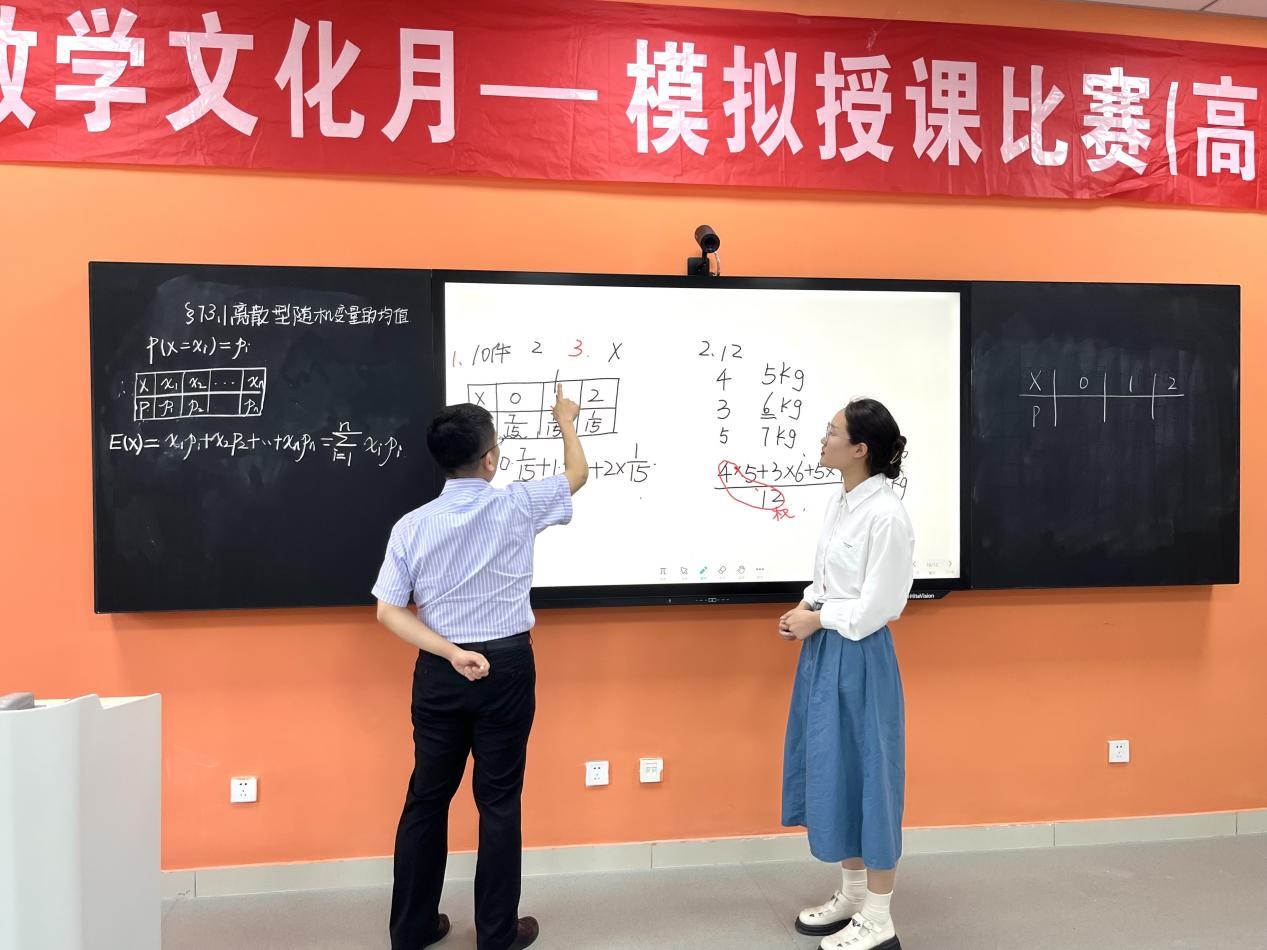 学文化月——模拟授课比赛(高
§73.1离散型随机变量的均值
P(X=xi)=pi
X x1 x2 ··· xn
P p1 p2 pn
E(X)= x1p1+x2p2+···+xnpn=∑ni=1 xipi
1. 10件 2 3. X
X 0 1 2
7/15 /15 1/15
0·7/15+1· +2×1/15
2.12
4 5kg
3 6kg
5 7kg
4×5+3×6+5×
12
权
X 0 1 2
P
HiteVision